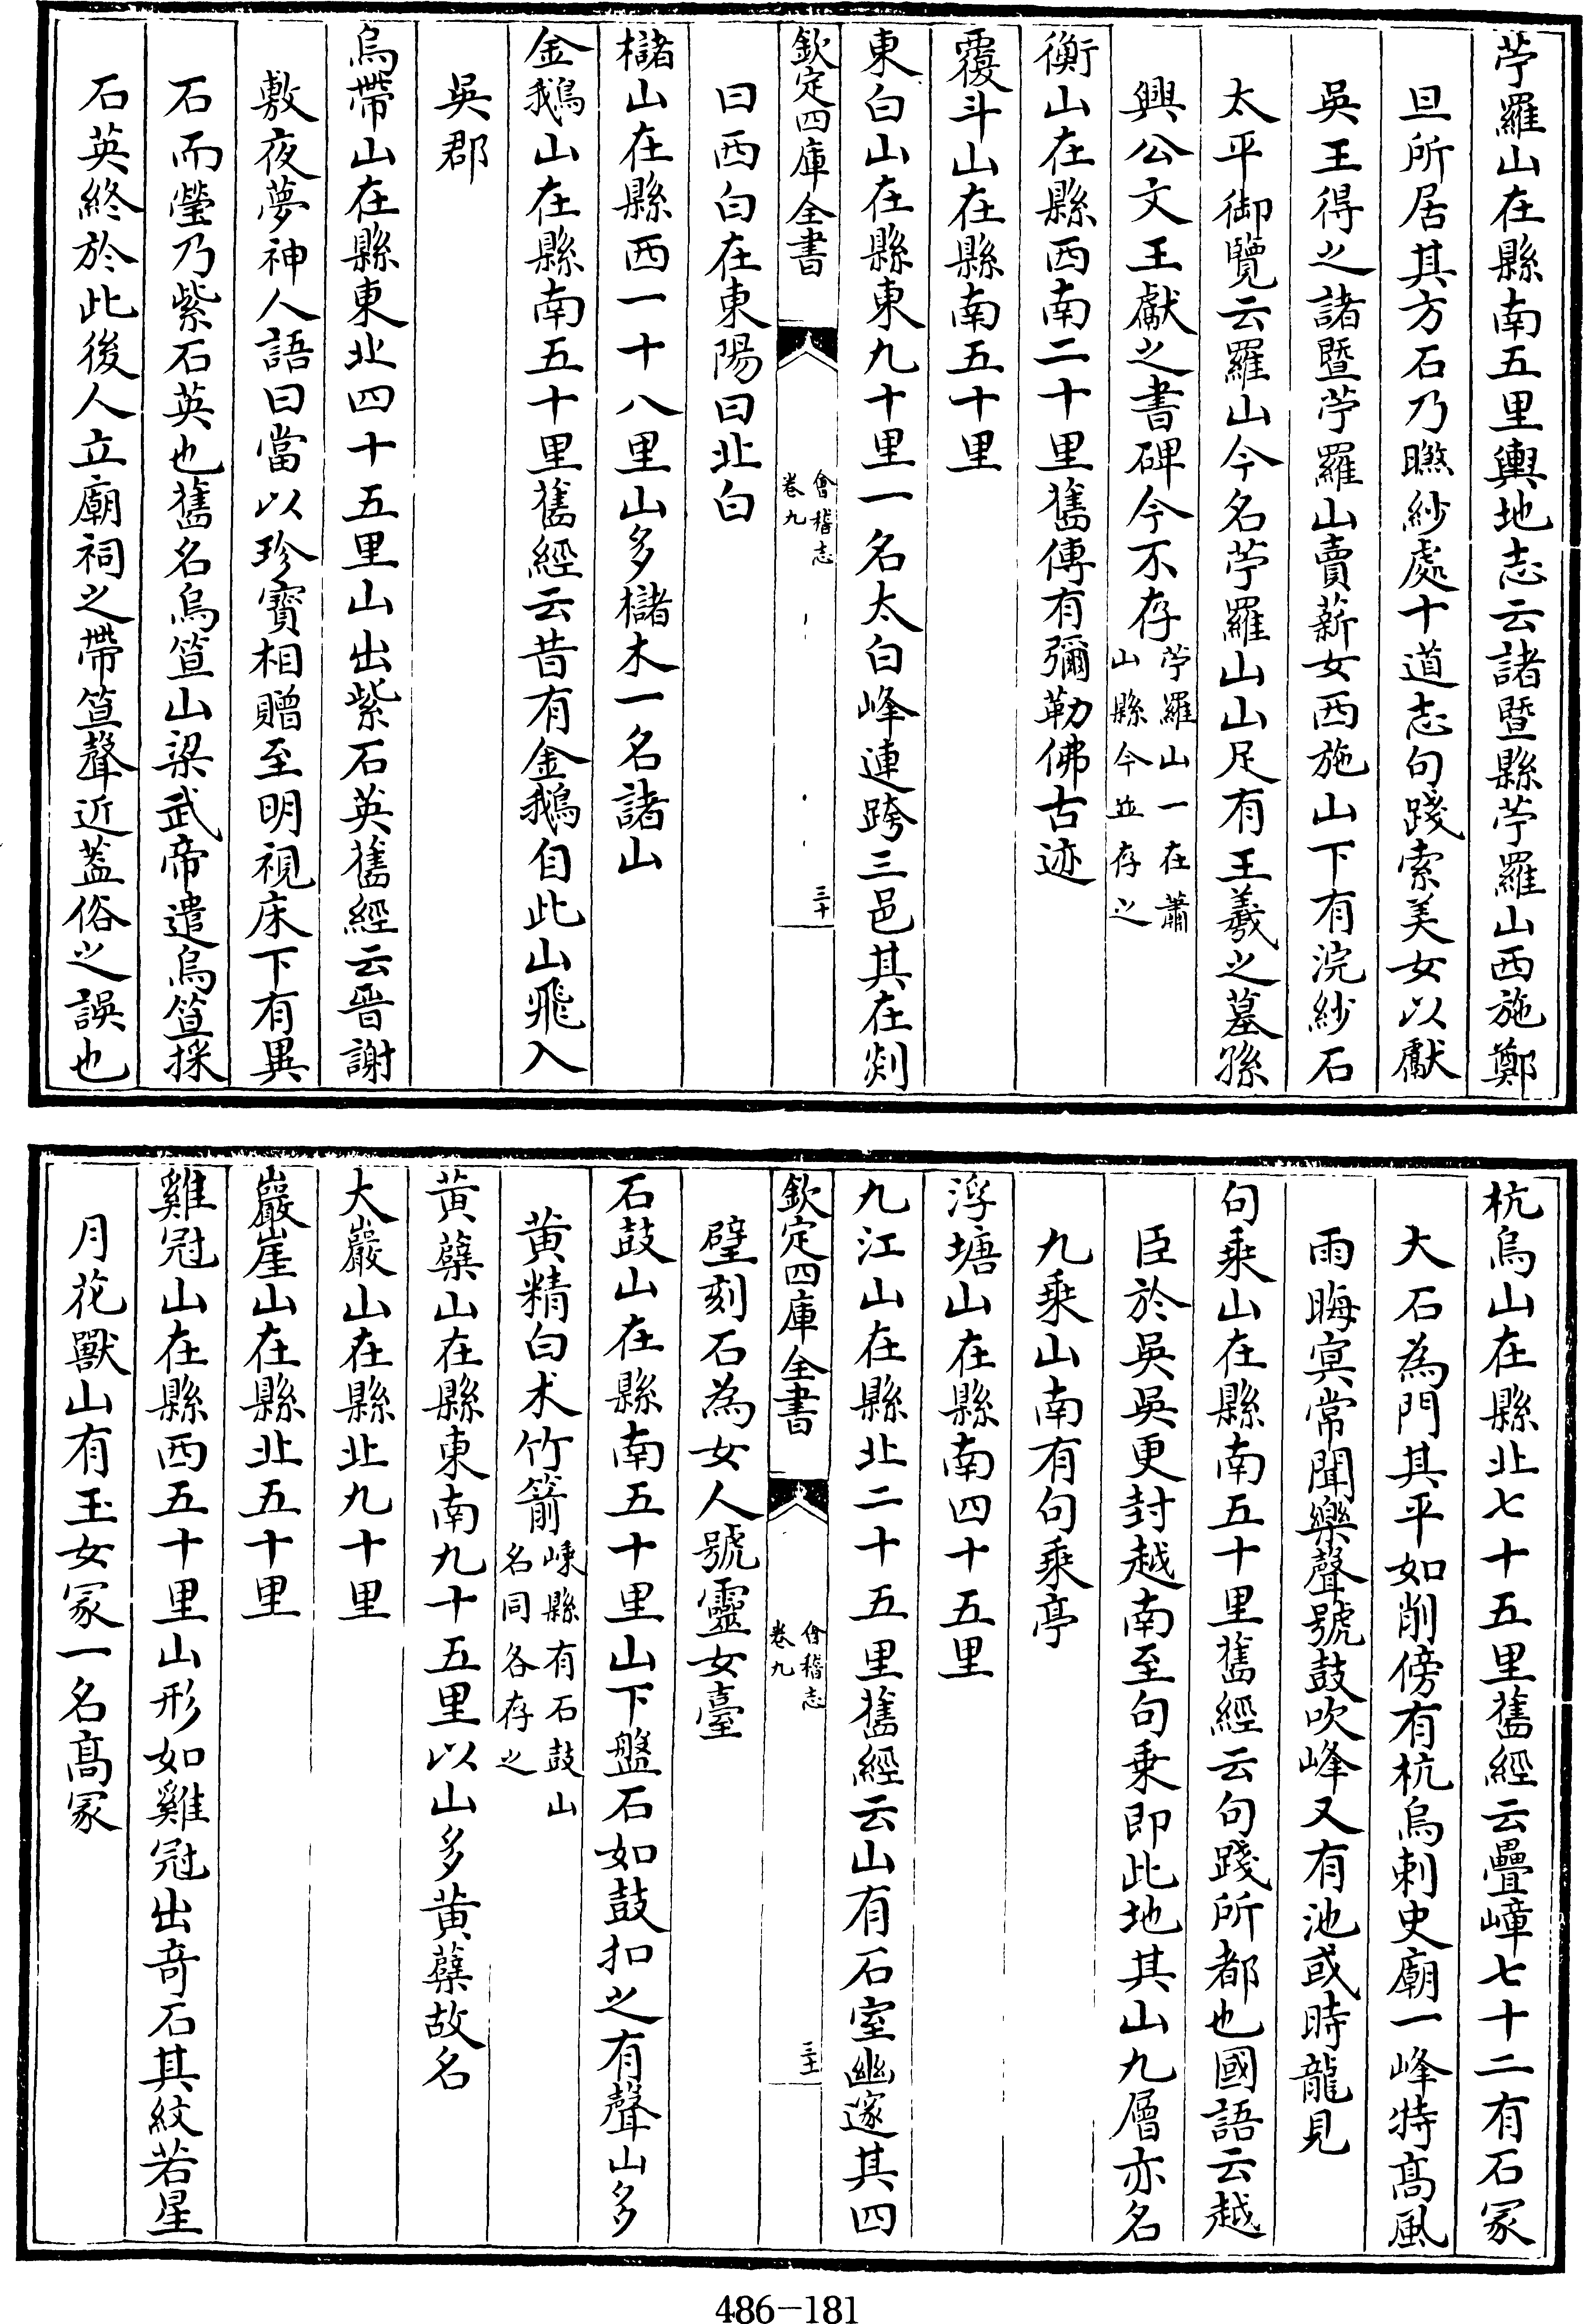 苧羅山在縣南五里輿地志云諸暨縣苧羅山西施鄭
旦所居其方石乃曬紗處十道志句踐索美女以獻
吳王得之諸暨苧羅山賣薪女西施山下有浣紗石
太平御覽云羅山今名苧羅山山足有王羲之墓孫
興公文王獻之書碑今不存苧羅山一在蕭
山縣今並存之
衡山在縣西南二十里舊傳有彌勒佛古迹
覆斗山在縣南五十里
東白山在縣東九十里一名太白峰連跨三邑其在剡
欽定四庫全書
會稽志
卷九
三十
曰西白在東陽曰北白
櫧山在縣西一十八里山多櫧木一名諸山
金鵝山在縣南五十里舊經云昔有金鵝自此山飛入
吳郡
烏帶山在縣東北四十五里山出紫石英舊經云晉謝
敷夜夢神人語曰當以珍寶相贈至明視床下有異
石而瑩乃紫石英也舊名烏笪山梁武帝遣烏笪採
石英終於此後人立廟祠之帶笪聲近蓋俗之誤也
杭烏山在縣北七十五里舊經云疊嶂七十二有石冢
大石為門其平如削傍有杭烏刺史廟一峰特髙風
雨晦冥常聞樂聲號鼓吹峰又有池或時龍見
句乘山在縣南五十里舊經云句踐所都也國語云越
臣於吳吳更封越南至句乘即此地其山九層亦名
九乘山南有句乘亭
浮塘山在縣南四十五里
九江山在縣北二十五里舊經云山有石室幽邃其四
欽定四庫全書
會稽志
卷九
三十一
壁刻石為女人號靈女臺
石鼓山在縣南五十里山下盤石如鼓扣之有聲山多
黄精白朮竹箭嵊縣有石鼓山
名同各存之
黄蘗山在縣東南九十五里以山多黄蘗故名
大巖山在縣北九十里
巖崖山在縣北五十里
雞冠山在縣西五十里山形如雞冠出奇石其紋若星
月花獸山有玉女冢一名髙冢
486-181